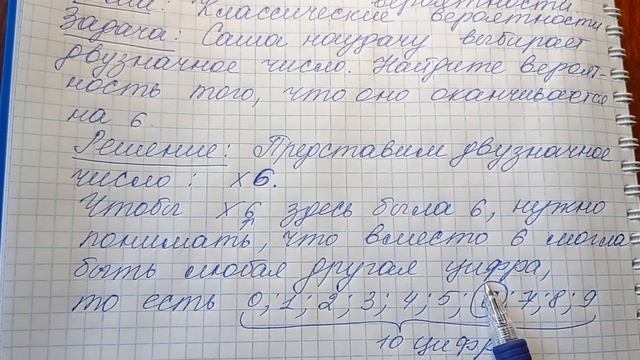 Классические вероятности.
Задача: Саша наудачу выбирает
двузначное число. Найдите вероят-
ность того, что оно оканчивается
на 6.
Решение: Представим двузначное
число: х6.
Чтобы х6 здесь была 6, нужно
понимать, что вместо 6 могла
быть любая другая цифра,
то есть 0; 1; 2; 3; 4; 5; 6; 7; 8; 9
10 цифр